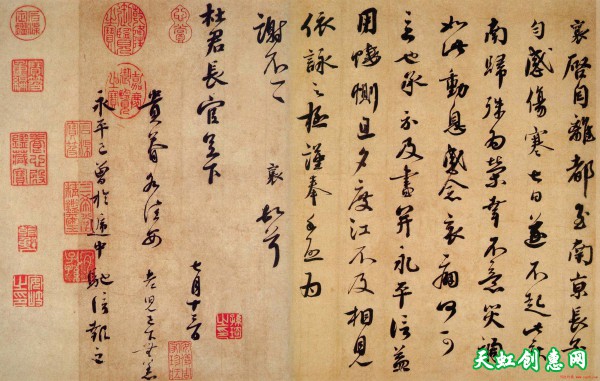 襄啓自離都至南京長子
匀感傷寒七日遂不起此
南歸殊為榮幸不意災禍
如此動息感念哀痛何可
言也承示及書并永平信益
用悽惻旦夕度江不及相見
依詠之極謹奉手啓為
謝不一一 襄 頓首
杜君長官足下
七月十三日
貴眷各佳安 老兒已下無恙
永平已曾於遞中馳信報之
天虹创意网